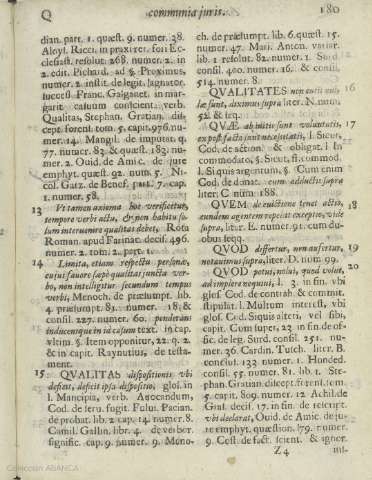 Q
communia juris.
180
dian. part. 1. quæst. 9. numer. 38.
Aloys. Ricci. in praxi rer. fori Ec-
clesiast. resolut. 268. numer. 2. in
2. edit. Pichard. ad §. Proximus,
numer. 2. instit. de legit. agnator.
success. Franc. Galganet. in mar-
garit. casuum conscient. verb.
Qualitas, Stephan. Gratian. dis-
cept. forens. tom. 5. capit. 976. nu-
mer. 14. Mangil. de imputat. q.
77. numer. 82. & quæst. 183. nu-
mer. 2. Ouid. de Amic. de jure
emphyt. quæst. 92. num. 5. Ni-
col. Gatz. de Benef. part. 7. cap.
1. numer. 58.
13 Vt tamen axioma hoc verificetur,
tempore verbi actus, & non habitus so-
lum interuenire qualitas debet, Rota
Roman. apud Farinac. decis. 496.
numer. 2. tom. 2. part. 1.
14 Limita, etiam respectu personæ,
cujus fauore sæpè qualitas juncta ver-
bo, non intelligitur secundum tempus
verbi, Menoch. de præsumpt. lib.
4. præsumpt. 82. numer. 18. &
consil. 227. numer. 60. ponderans
inducemque in id casum text. in cap.
vltim. §. Item opponitur, 22. q. 2.
& in capit. Raynutius, de testa-
ment.
15 QVALITAS dispositionis vbi
deficit, deficit ipsa dispositio, glos. in
l. Mancipia, verb. Auocandum,
Cod. de seru. fugit. Fului. Pacian.
de probat. lib. 2. cap. 14. numer. 8.
Camil. Gallin. libr. 4. de verbor.
signific. cap. 9. numer. 9. Meno-
ch. de præsumpt. lib. 6. quæst. 15.
numer. 47. Mari. Anton. variar.
lib. 1. resolut. 82. numer. 1. Surd.
consil. 400. numer. 16. & consil.
514. numer. 8.
QVALITATES non entis nul- 16
læ sunt, diximus supra liter. N. num.
52. & seq.
QVÆ ab initio sunt voluntatis, 17
ex post facto sunt necessitatis, l. Sicut,
Cod. de action. & obligat. l. In
commodato, §. Sicut, ff. commod.
l. Si quis argentum, §. Cum enim
Cod. de donat. cum adductis supra
liter. C num. 188.
QVEM de euictione tenet actio, 18
eundem agentem repellit exceptio, vide
supra, liter. E. numer. 91. cum du-
obus seqq.
QVOD differtur, non aufertur, 19
notauimus supra, liter. D. num. 99.
QVOD potui, nolui, quod volui, 20
adimplere nequiui, l. 3. in fin. vbi
glos. Cod. de contrah. & commit.
stipulit. l. Multum interest, vbi
glos. Cod. Si quis alteri, vel sibi,
capit. Cum super, 23. in fin. de of-
fic. de leg. Surd. consil. 251. nu-
mer. 36. Cardin. Tusch. liter. B.
conclus. 133. numer. 1. Honded.
consil. 55. numer. 81. lib. 1. Ste-
phan. Gratian. discept. forens. tom.
5. capit. 809. numer. 12. Achil. de
Gras. decis. 17. in fin. de rescript.
vbi declarat, Ouid. de Amic. de ju-
re emphyt. quæstion. 79. numer.
9. Cest. de fact. scient. & ignor.
Z 4
Colección ABANCA